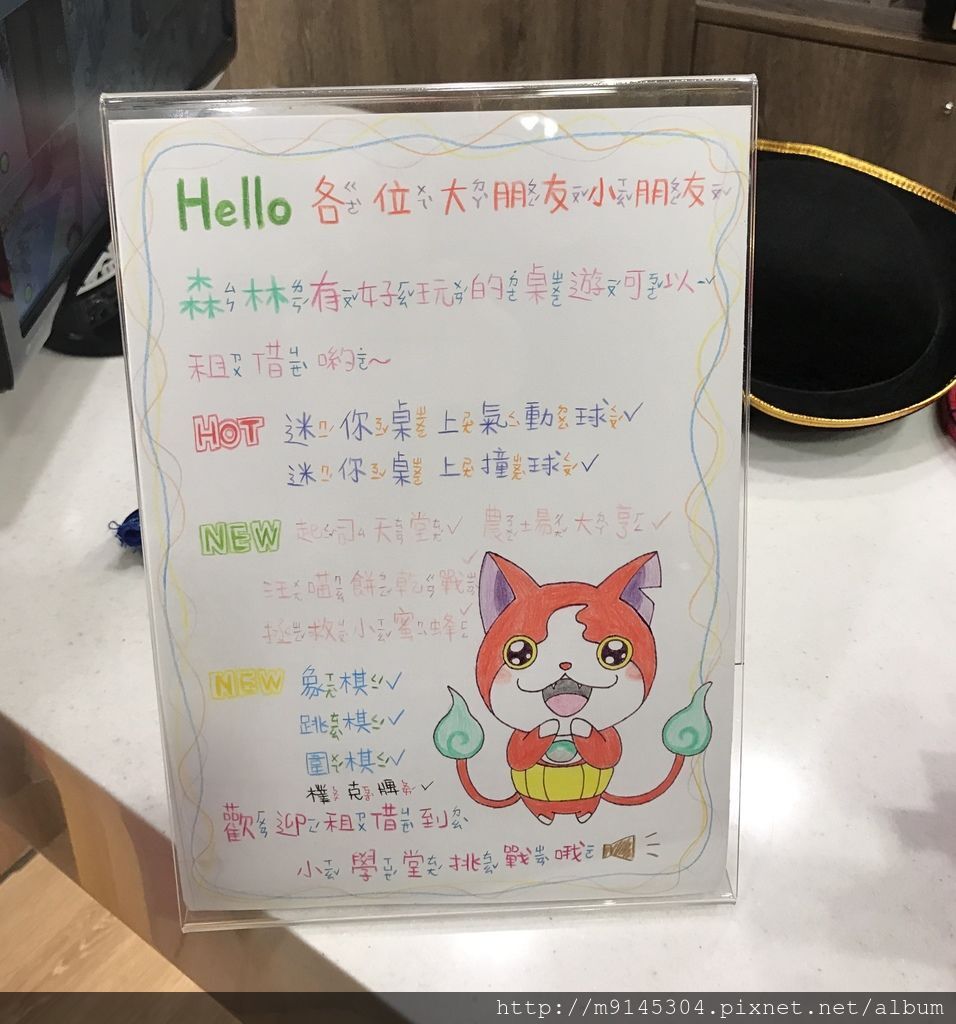 Hello 各位大朋友小朋友
森林有好玩的桌遊可以
租借喲~
HOT 迷你桌上氣動球✓
迷你桌上撞球✓
NEW 起司天堂✓ 農場大亨✓
汪喵餅乾戰✓
拯救小蜜蜂✓
NEW 象棋✓
跳棋✓
圍棋✓
樸克牌✓
歡迎租借到
小學堂挑戰哦
http://m9145304.pixnet.net/album